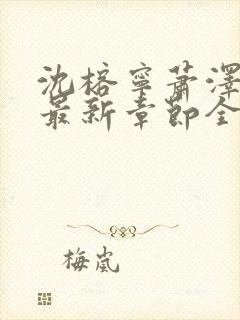 沈榕寧蕭澤
最新章節全
梅嵐